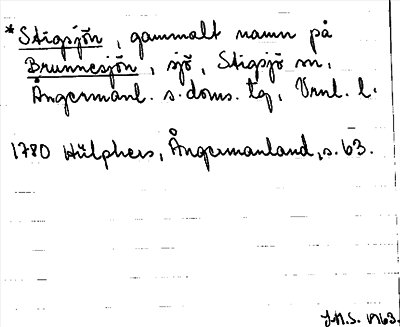 *Stigsjön, gammalt namn på
Brunnesjön, sjö, Stigsjö sn,
Ångermanl. s. doms. tg, Vrnl. l.
1780 Hülphers, Ångermanland, s. 63.
J.N.S. 1963.